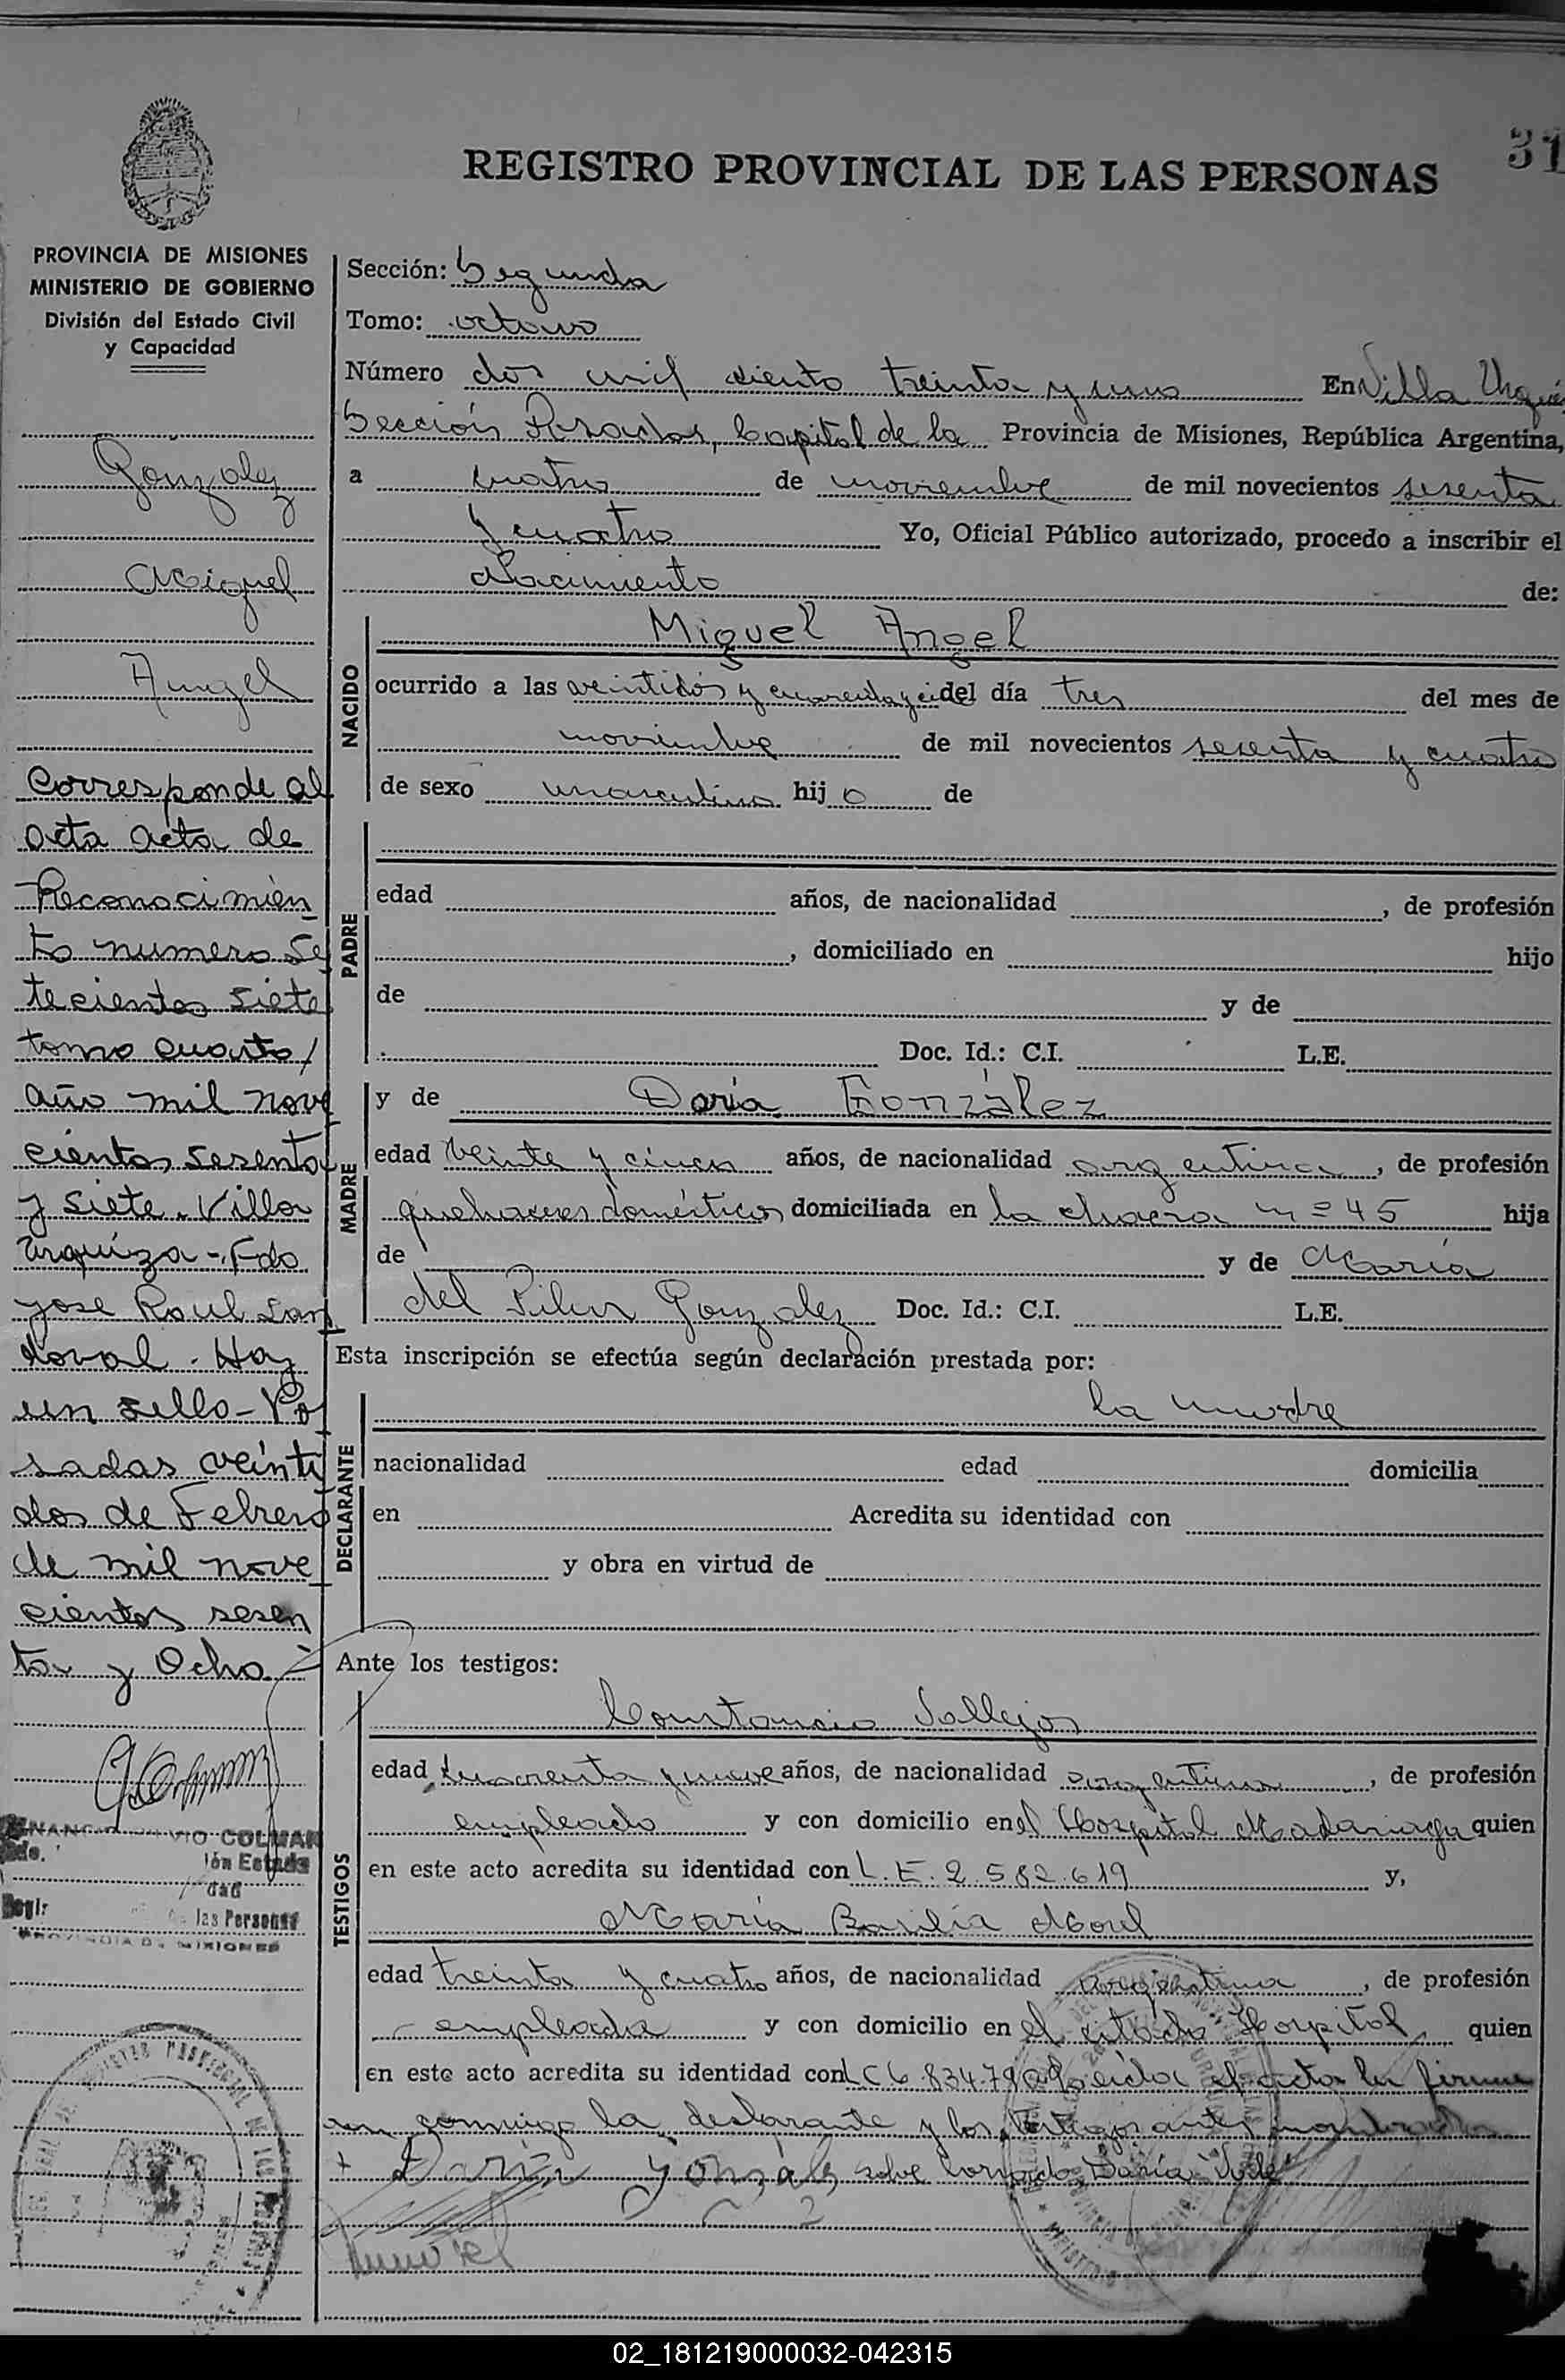 31
REGISTRO PROVINCIAL DE LAS PERSONAS
PROVINCIA DE MISIONES
MINISTERIO DE GOBIERNO
División del Estado Civil
y Capacidad
Gonzalez
Miguel
Angel
Corresponde al
acta acta de
Reconocimien
to numero se
tecientos siete
tomo cuarto/
año mil nove
cientos sesenta
y siete. Villa
Urquiza-, Fdo
Jose Raul San
doval. Hay
un sello- Po
sadas veinti
dos de Febrero
de mil nove
cientos sesen
ta y Ocho
COLMAN
ión Estado
dad
las Personas
PROVINCIA DE MISIONES
Sección: Segunda
Tomo: octavo
Número dos mil ciento treinta y uno En Villa Urqui
Sección Posadas, Capital de la Provincia de Misiones, República Argentina,
a cuatro de noviembre de mil novecientos sesenta
y cuatro Yo, Oficial Público autorizado, procedo a inscribir el
Nacimiento de:
NACIDO
Miguel Angel
ocurrido a las veintidós y cuarenta y del día tres del mes de
noviembre de mil novecientos sesenta y cuatro
de sexo masculino hijo de
PADRE
edad años, de nacionalidad , de profesión
, domiciliado en hijo
de y de
Doc. Id.: C.I. L.E.
MADRE
y de Daria González
edad veinte y cinco años, de nacionalidad argentina, de profesión
quehaceres domésticos domiciliada en la chacra nº 45 hija
de y de Maria
del Pilar Gonzalez Doc. Id.: C.I. L.E.
Esta inscripción se efectúa según declaración prestada por:
DECLARANTE
la madre
nacionalidad edad domicilia
en Acredita su identidad con
y obra en virtud de
Ante los testigos:
TESTIGOS
Constancio Vallejos
edad cuarenta y nueve años, de nacionalidad argentina, de profesión
empleado y con domicilio en el Hospital Madariaga quien
en este acto acredita su identidad con L.E. 2.582.619 y,
María Basilia
edad treinta y cuatro años, de nacionalidad argentina, de profesión
empleada y con domicilio en el citado Hospital quien
en este acto acredita su identidad con LC 6.834.79 leida el acta la firma
conmigo la declarante y los testigos antes nombrados
Daria Gonzalez sobre borrado Daría Vale
02_181219000032-042315